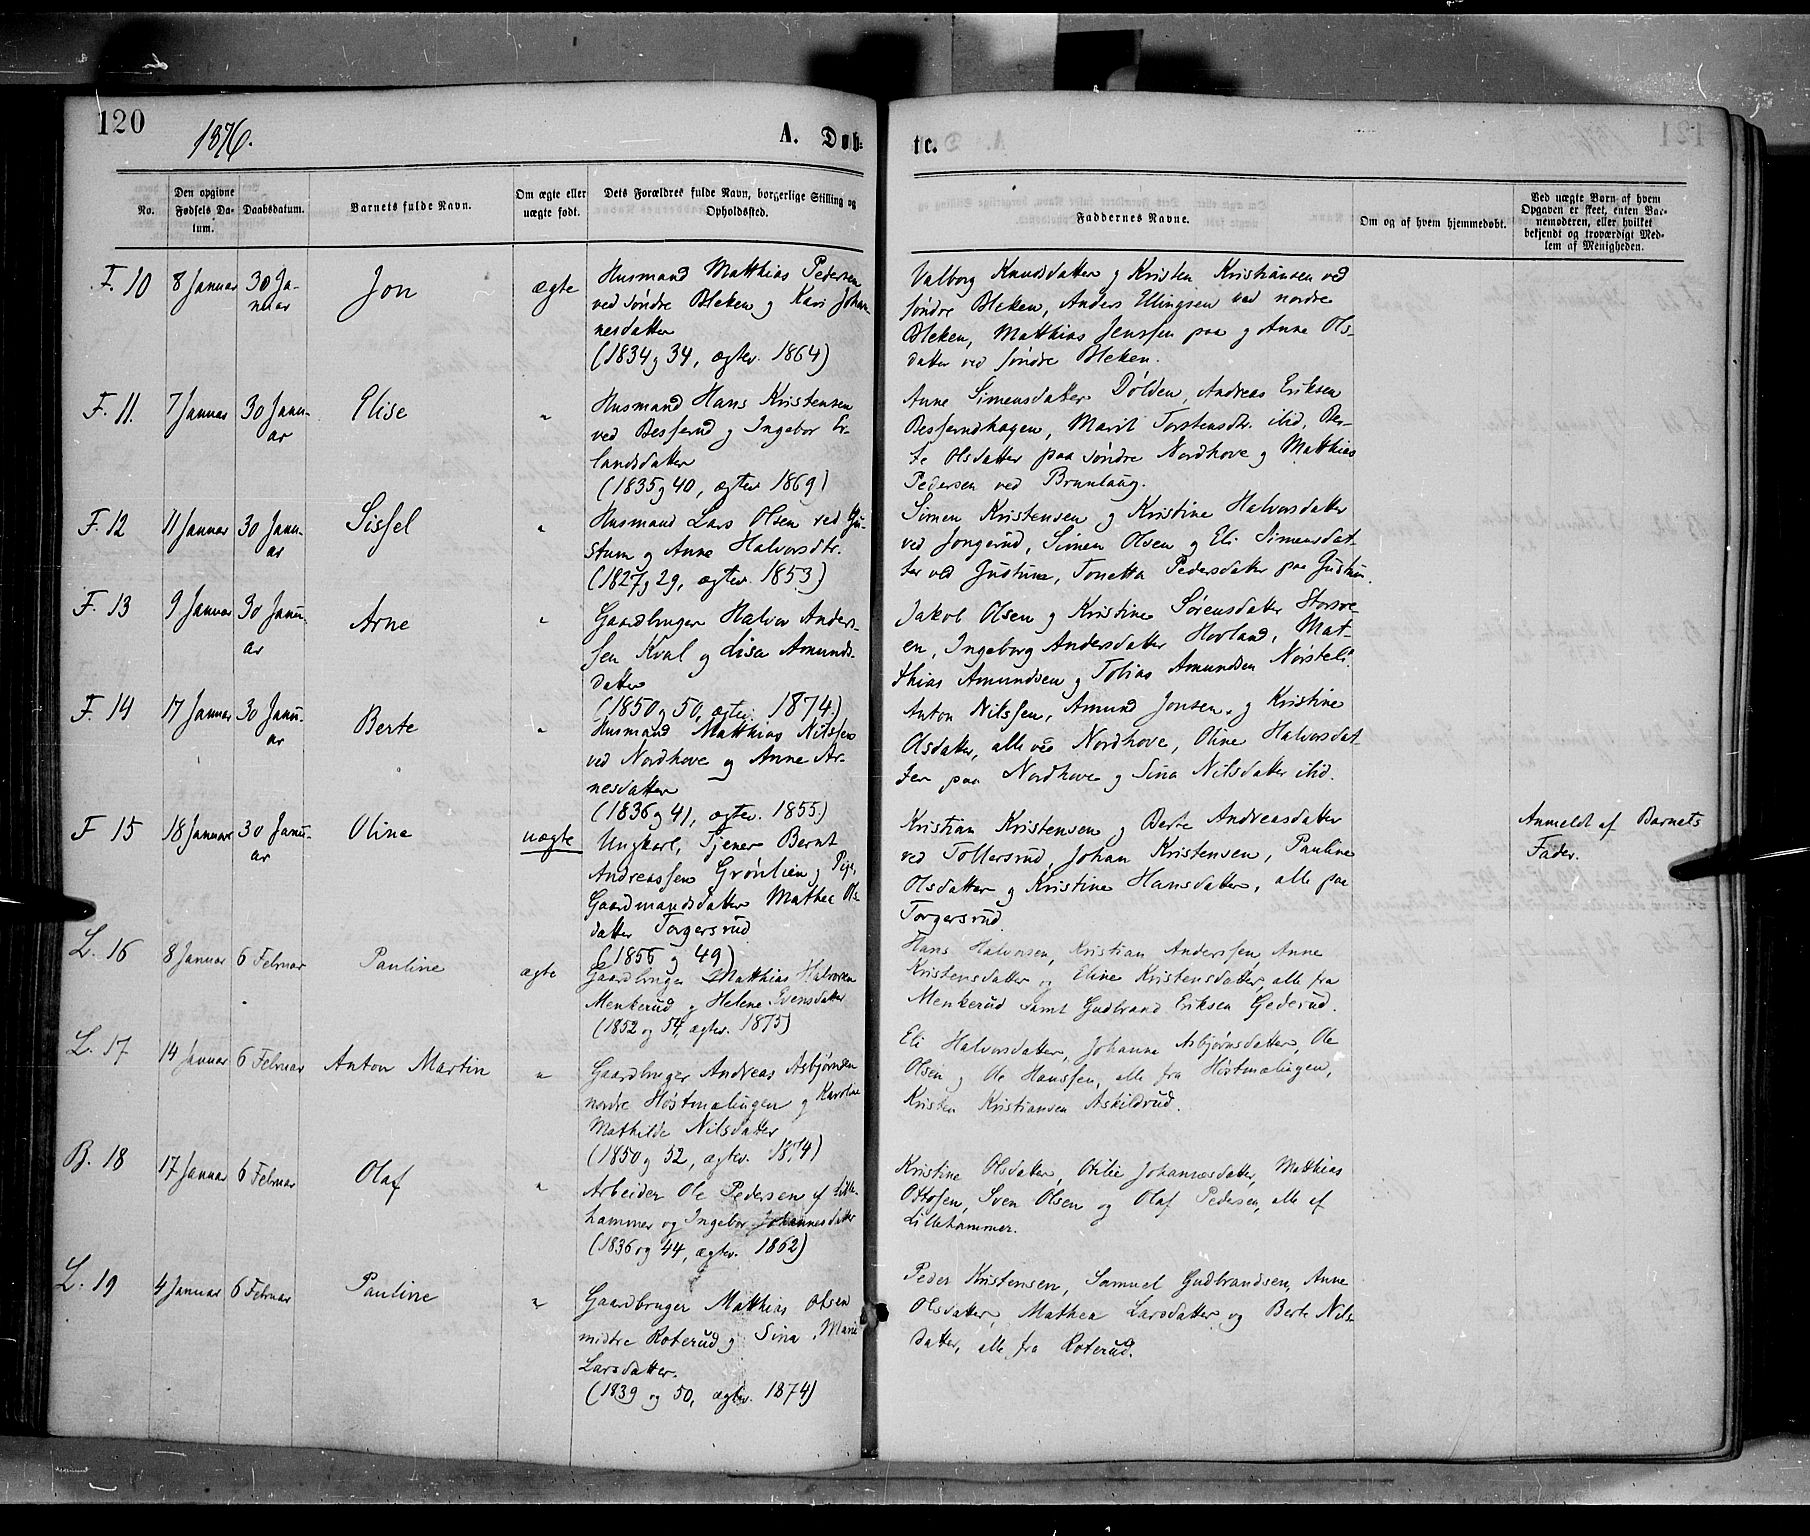 120
1876.
A. Døb-
te.
121
No.
Den opgivne Fødsels Da-
tum.
Daabsdatum.
Barnets fulde Navn.
Om ægte eller
uægte født.
Dets Forældres fulde Navn, borgerlige Stilling og
Opholdssted.
Faddernes Navne.
Om og af hvem hjemmedøbt.
Ved uægte Børn af hvem
Opgaven er skeet, enten Bar-
nemoderen, eller hvilket
bekjendt og troværdigt Med-
lem af Menigheden.
F. 10
8 Januar
30 Ja-
nuar
Jon
ægte
Husmand Matthias Pedersen
ved søndre Bleken og Kari Johan-
nesdatter
(1834 og 34, ægtev. 1864)
Valborg Knudsdatter og Kristen Kristiansen ved
søndre Bleken, Anders Ellingsen ved nordre
Bleken, Matthias Jenssen paa og Anne Ols-
datter ved søndre Bleken.
F. 11.
7 Januar
30 Janu-
ar
Elise
"
Husmand Hans Kristensen
ved Besserud og Ingebor Er-
landsdatter
(1835 og 40, ægtev. 1869)
Anne Simensdatter Dølden, Andreas Eriksen
Besserudhagen, Marit Torstensdtr. ibid, Ber-
te Olsdatter paa søndre Nordhove og Matthias
Pedersen ved Brunlaug.
F. 12
11 Januar
30 Janu-
ar
Sissel
"
Husmand Lars Olsen ved Gu-
stum og Anne Halvorsdtr.
(1827 og 29, ægtev. 1853)
Simen Kristensen og Kristine Halvorsdatter
ved Jongerud, Simen Olsen og Eli Simensdat-
ter ved Gustum, Tonetta Pedersdatter paa Gustum.
F. 13
9 Januar
30 Janu-
ar
Arne
"
Gaardbruger Halvor Anders-
sen Kval og Lisa Amunds-
datter
(1850 og 50, ægtev. 1874)
Jakob Olsen og Kristine Sørensdatter Storsve-
en, Ingeborg Andersdatter Hovland, Mat-
thias Amundsen og Tobias Amundsen Nørsteli.
F. 14
17 Januar
30 Janu-
ar
Berte
"
Husmand Matthias Nilssen
ved Nordhove og Anne Ar-
nesdatter
(1836 og 41, ægtev. 1855)
Anton Nilssen, Amund Jonsen og Kristine
Olsdatter, alle ved Nordhove, Oline Halvorsdat-
ter paa Nordhove og Sina Nilsdatter ibid.
F 15
18 Januar
30 Janu-
ar
Oline
uægte
Ungkarl, Tjener Bernt
Andreassen Grønlien og Pige,
Gaardmandsdatter Mathea Ols-
datter Torgersrud
(1855 og 49)
Kristian Kristensen og Berte Andreasdatter
ved Tollersrud, Johan Kristensen, Pauline
Olsdatter og Kristine Hansdatter, alle paa
Torgersrud.
Anmeldt af Barnets
Fader.
L. 16
8 Januar
6 Februar
Pauline
ægte
Gaardbruger Matthias Halvorsen
Menkerud og Helene Svensdatter
(1852 og 54, ægtev. 1875)
Hans Halvorsen, Kristian Anderssen, Anne
Kristensdatter og Eline Kristensdatter, alle fra
Menkerud samt Gudbrand Eriksen Gederud.
L. 17
14 Januar
6 Februar
Anton Martin
"
Gaardbruger Andreas Asbjørnsen
nordre Høstmælingen og Karoline
Mathilde Nilsdatter
(1850 og 52, ægtev. 1874)
Eli Halvorsdatter, Johanne Asbjørnsdatter, Ole
Olsen og Ole Hanssen, alle fra Høstmælingen,
Kristen Kristiansen Askildrud.
B. 18
17 Januar
6 Februar
Olaf
"
Arbeider Ole Pedersen af Lille-
hammer og Ingebor Johannesdatter
(1836 og 44, ægtev. 1862)
Kristine Olsdatter, Otilie Johannesdatter, Matthias
Ottosen, Sven Olsen og Olaf Pedersen, alle af
Lillehammer.
L. 19
4 Januar
6 Februar
Pauline
"
Gaardbruger Matthias Olsen
midtre Roterud og Sina Marie
Larsdatter.
(1839 og 50, ægtev. 1874)
Peder Kristensen, Samuel Gudbrandsen, Anne
Olsdatter, Mathea Larsdatter og Berte Nils-
datter, alle fra Roterud.